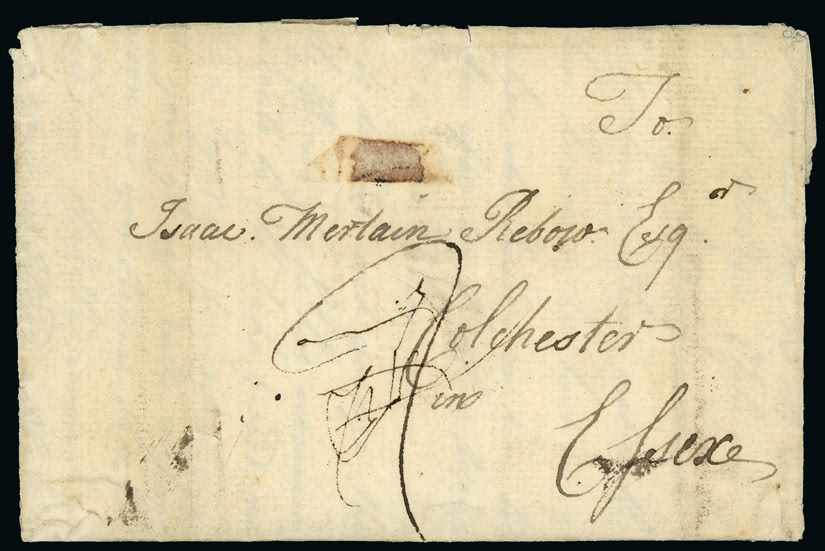 To.
Isaac. Mertain Rebow. Esqr.
Colchester
in
Essex